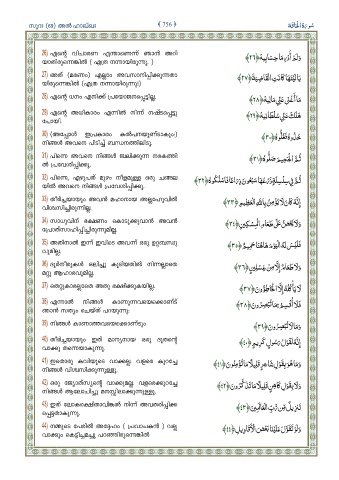 സൂറ: (69) അൽ-ഹാഖ്ഖ
﴾ 756 ﴿
سورة الحاقة
26) എന്റെ വിചാരണ എന്താണെന്ന് ഞാൻ അറി
യാതിരുന്നെങ്കിൽ ( എത്ര നന്നായിരുന്നു. )
وَلَمْ أَدْرِ مَا حِسَابِيَهْ ﴿٢٦﴾
27) അത് (മരണം) എല്ലാം അവസാനിപ്പിക്കുന്നതാ
യിരുന്നെങ്കിൽ (എത്ര നന്നായിരുന്നു!)
يَا لَيْتَهَا كَانَتِ الْقَاضِيَةَ ﴿٢٧﴾
28) എന്റെ ധനം എനിക്ക് പ്രയോജനപ്പെട്ടില്ല.
مَا أَغْنَىٰ عَنِّي مَالِيَهْ ﴿٢٨﴾
29) എന്റെ അധികാരം എന്നിൽ നിന്ന് നഷ്ടപ്പെട്ടു
പോയി.
هَلَكَ عَنِّي سُلْطَانِيَهْ ﴿٢٩﴾
30) (അപ്പോൾ ഇപ്രകാരം കൽപനയുണ്ടാകും)
നിങ്ങൾ അവനെ പിടിച്ച് ബന്ധനത്തിലിടൂ.
خُذُوهُ فَغُلُّوهُ ﴿٣٠﴾
31) പിന്നെ അവനെ നിങ്ങൾ ജ്വലിക്കുന്ന നരകത്തി
ൽ പ്രവേശിപ്പിക്കൂ.
ثُمَّ الْجَحِيمَ صَلُّوهُ ﴿٣١﴾
32) പിന്നെ, എഴുപത് മുഴം നീളമുള്ള ഒരു ചങ്ങല
യിൽ അവനെ നിങ്ങൾ പ്രവേശിപ്പിക്കൂ.
ثُمَّ فِي سِلْسِلَةٍ ذَرْعُهَا سَبْعُونَ ذِرَاعًا فَاسْلُكُوهُ ﴿٣٢﴾
33) തീർച്ചയായും അവൻ മഹാനായ അല്ലാഹുവിൽ
വിശ്വസിച്ചിരുന്നില്ല.
إِنَّهُ كَانَ لَا يُؤْمِنُ بِاللَّهِ الْعَظِيمِ ﴿٣٣﴾
34) സാധുവിന് ഭക്ഷണം കൊടുക്കുവാൻ അവൻ
പ്രോത്സാഹിപ്പിച്ചിരുന്നുമില്ല.
وَلَا يَحُضُّ عَلَىٰ طَعَامِ الْمِسْكِينِ ﴿٣٤﴾
35) അതിനാൽ ഇന്ന് ഇവിടെ അവന് ഒരു ഉറ്റബന്ധു
വുമില്ല.
فَلَيْسَ لَهُ الْيَوْمَ هَاهُنَا حَمِيمٌ ﴿٣٥﴾
36) ദുർനീരുകൾ ഒലിച്ചു കൂടിയതിൽ നിന്നല്ലാതെ
മറ്റു ആഹാരവുമില്ല.
وَلَا طَعَامٌ إِلَّا مِنْ غِسْلِينٍ ﴿٣٦﴾
37) തെറ്റുകാരല്ലാതെ അതു ഭക്ഷിക്കുകയില്ല.
لَا يَأْكُلُهُ إِلَّا الْخَاطِئُونَ ﴿٣٧﴾
38) എന്നാൽ നിങ്ങൾ കാണുന്നവയെക്കൊണ്ട്
ഞാൻ സത്യം ചെയ്ത് പറയുന്നു:
فَلَا أُقْسِمُ بِمَا تُبْصِرُونَ ﴿٣٨﴾
39) നിങ്ങൾ കാണാത്തവയെക്കൊണ്ടും
وَمَا لَا تُبْصِرُونَ ﴿٣٩﴾
40) തീർച്ചയായും ഇത് മാന്യനായ ഒരു ദൂതന്റെ
വാക്കു തന്നെയാകുന്നു.
إِنَّهُ لَقَوْلُ رَسُولٍ كَرِيمٍ ﴿٤٠﴾
41) ഇതൊരു കവിയുടെ വാക്കല്ല. വളരെ കുറച്ചേ
നിങ്ങൾ വിശ്വസിക്കുന്നുള്ളൂ.
وَمَا هُوَ بِقَوْلِ شَاعِرٍ قَلِيلًا مَا تُؤْمِنُونَ ﴿٤١﴾
42) ഒരു ജ്യോത്സ്യന്റെ വാക്കുമല്ല. വളരെക്കുറച്ചേ
നിങ്ങൾ ആലോചിച്ചു മനസ്സിലാക്കുന്നുള്ളൂ.
وَلَا بِقَوْلِ كَاهِنٍ قَلِيلًا مَا تَذَكَّرُونَ ﴿٤٢﴾
43) ഇത് ലോകരക്ഷിതാവിങ്കൽ നിന്ന് അവതരിപ്പിക്ക
പ്പെട്ടതാകുന്നു.
تَنْزِيلٌ مِنْ رَبِّ الْعَالَمِينَ ﴿٤٣﴾
44) നമ്മുടെ പേരിൽ അദ്ദേഹം ( പ്രവാചകൻ ) വല്ല
വാക്കും കെട്ടിച്ചമച്ചു പറഞ്ഞിരുന്നെങ്കിൽ
وَلَوْ تَقَوَّلَ عَلَيْنَا بَعْضَ الْأَقَاوِيلِ ﴿٤٤﴾